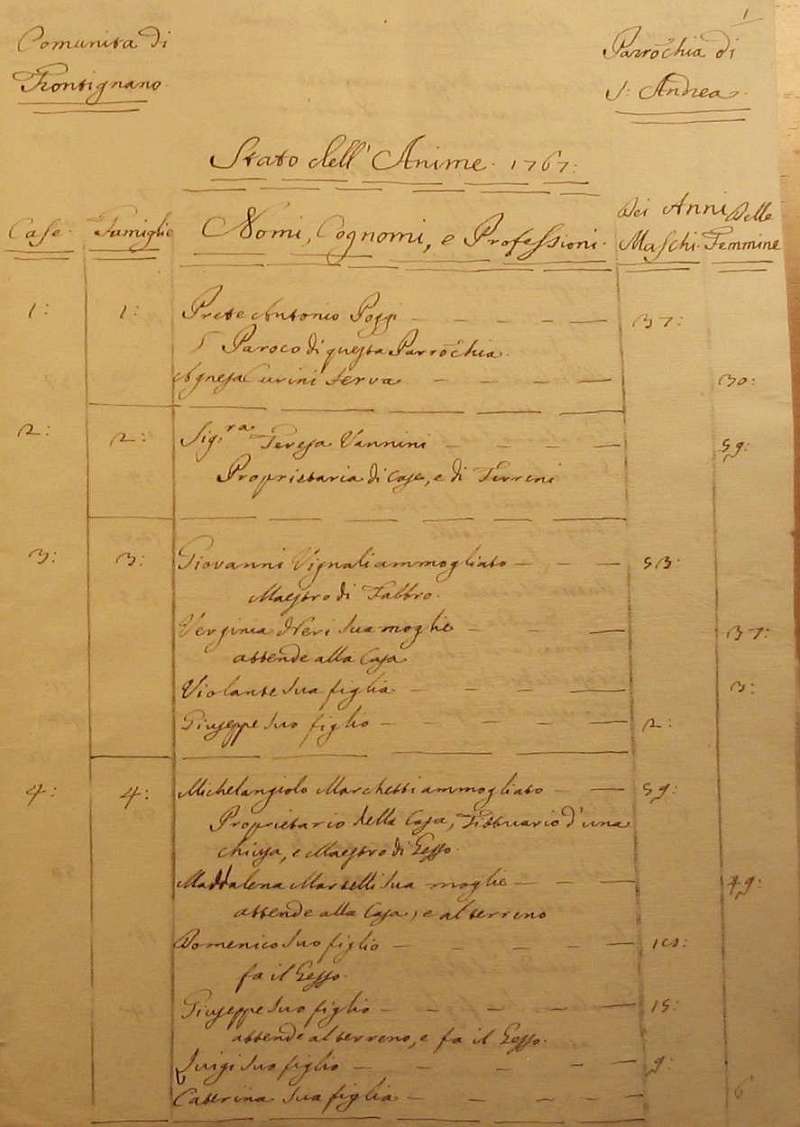 1
Comunita di
Frontignano.
Parrochia di
S: Andrea.
Stato dell' Anime. 1767:
Case. Famiglie Nomi, Cognomi, e Professioni. Dei Anni Delle
Maschi. Femmine
1: 1: Prete Antonio Poggi 37:
Paroco di questa Parrochia.
Agnesa Curini Serva 30:
2: 2: Sig.ra Teresa Vannini 59:
Proprietaria di Case, e di Terreni
3: 3: Giovanni Vignali ammogliato 53:
Maestro di Fabbro.
Verginia Neri sua moglie 37:
attende alla Casa
Violante sua figlia 3:
Giuseppe suo figlio 2:
4: 4: Michelangiolo Marchetti ammogliato 59:
Proprietario della Casa, d'una
chiusa, e Maestro di Gesso.
Maddalena Martelli sua moglie 49:
attende alla Casa, e al terreno
Domenico suo figlio
fa il Gesso.
Giuseppe suo figlio 15:
attende al terreno, e fa il Gesso.
Luigi suo figlio 9:
Caterina sua figlia 6